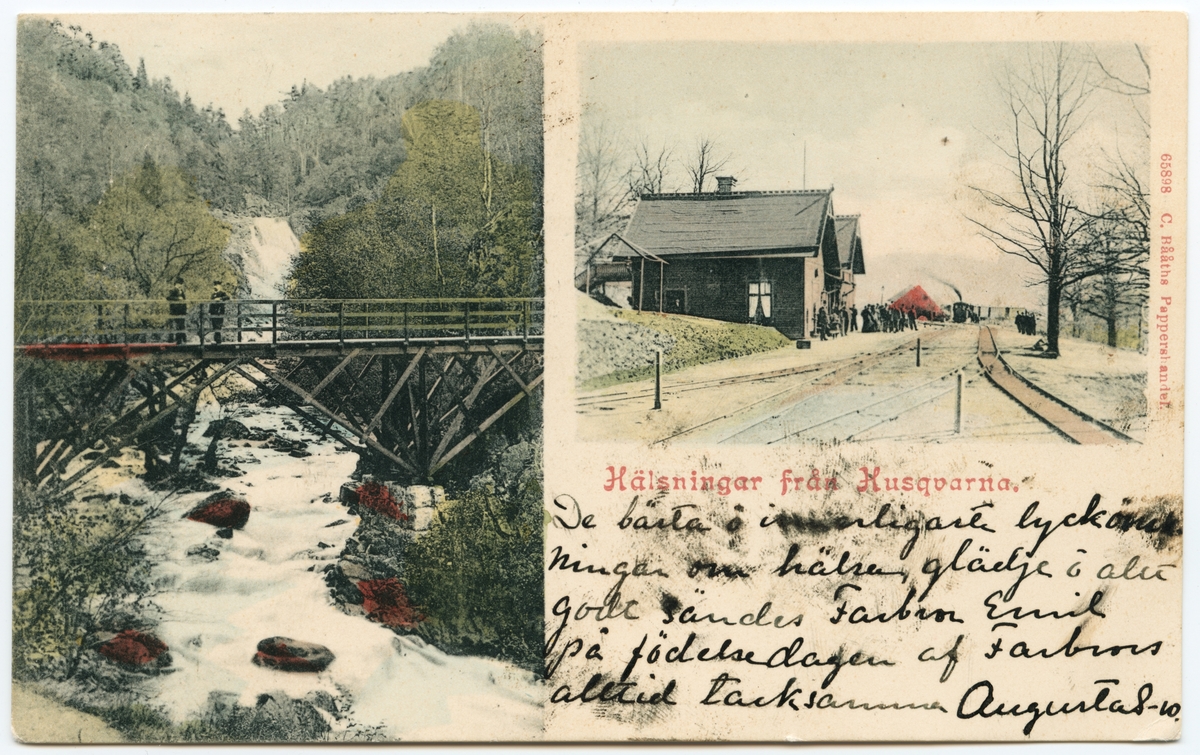 Hälsningar från Husqvarna.
De bästa o innerligaste lyckönsk-
ningar om hälsa, glädje o allt
godt sändes Farbror Emil
på födelsedagen af Farbrors
alltid tacksamma Augusta
65898 C. Rååths Pappershandel.